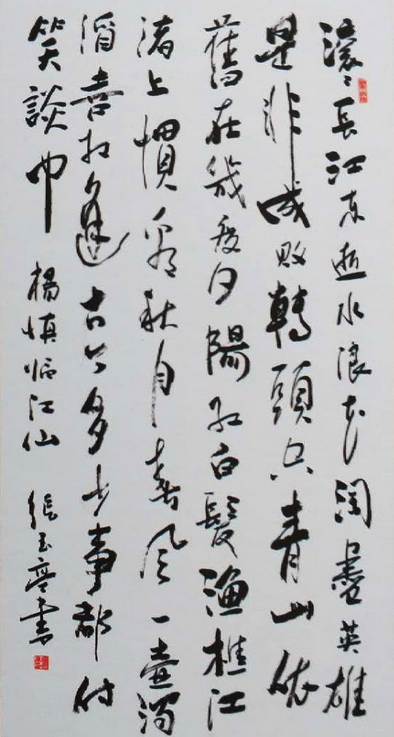 滚々長江东逝水浪花淘盡英雄
是非成败轉頭空青山依
舊在幾度夕陽红白髮漁樵江
渚上慣看秋月春風一壺濁
酒喜相逢古今多少事都付
笑談中 楊慎临江仙 張玉書